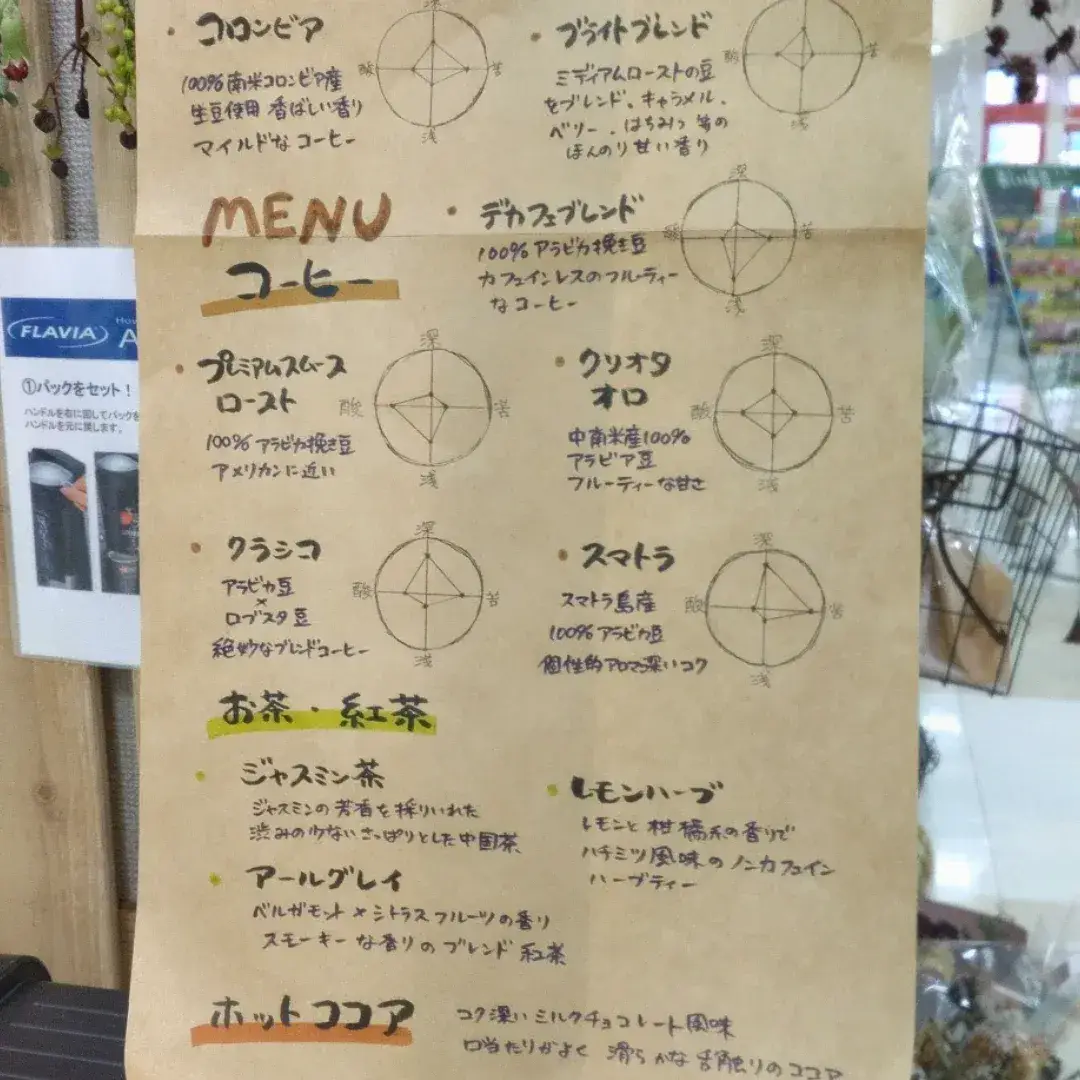 コロンビア
100%南米コロンビア産
生豆使用 香ばしい香り
マイルドなコーヒー
深
酸 苦
浅
ブライトブレンド
ミディアムローストの豆
をブレンド、キャラメル、
ベリー、はちみつ 等の
ほんのり甘い香り
酸 苦
浅
MENU
コーヒー
デカフェブレンド
100%アラビカ挽き豆
カフェインレスのフルーティー
なコーヒー
深
酸 苦
浅
プレミアムスムース
ロースト
100%アラビカ挽き豆
アメリカンに近い
深
酸 苦
浅
クリオタ
オロ
中南米産100%
アラビア豆
フルーティーな甘さ
深
酸 苦
浅
クラシコ
アラビカ豆
×
ロブスタ豆
絶妙なブレンドコーヒー
深
酸 苦
浅
スマトラ
スマトラ島産
100%アラビカ豆
個性的アロマ深いコク
深
酸 苦
浅
お茶・紅茶
ジャスミン茶
ジャスミンの芳香を採りいれた
渋みの少ないさっぱりとした中国茶
レモンハーブ
レモンと柑橘系の香りで
ハチミツ風味のノンカフェイン
ハーブティー
アールグレイ
ベルガモット×シトラスフルーツの香り
スモーキーな香りのブレンド紅茶
ホットココア
コク深いミルクチョコレート風味
口当たりがよく 滑らかな舌触りのココア
FLAVIA
①パックをセット!
ハンドルを右に回してパックを
ハンドルを元に戻します。